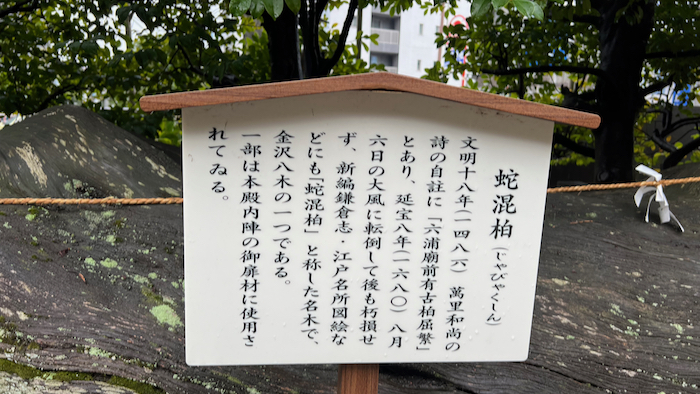 蛇混柏(じゃびゃくしん)
文明十八年(一四八六) 萬里和尚の
詩の自註に「六浦廟前有古柏屈繁」
とあり、延宝八年(一六八〇) 八月
六日の大風に転倒して後も朽損せ
ず、新編鎌倉志・江戸名所図絵な
どにも「蛇混柏」と称した名木で、
金沢八木の一つである。
一部は本殿内陣の御扉材に使用さ
れてゐる。